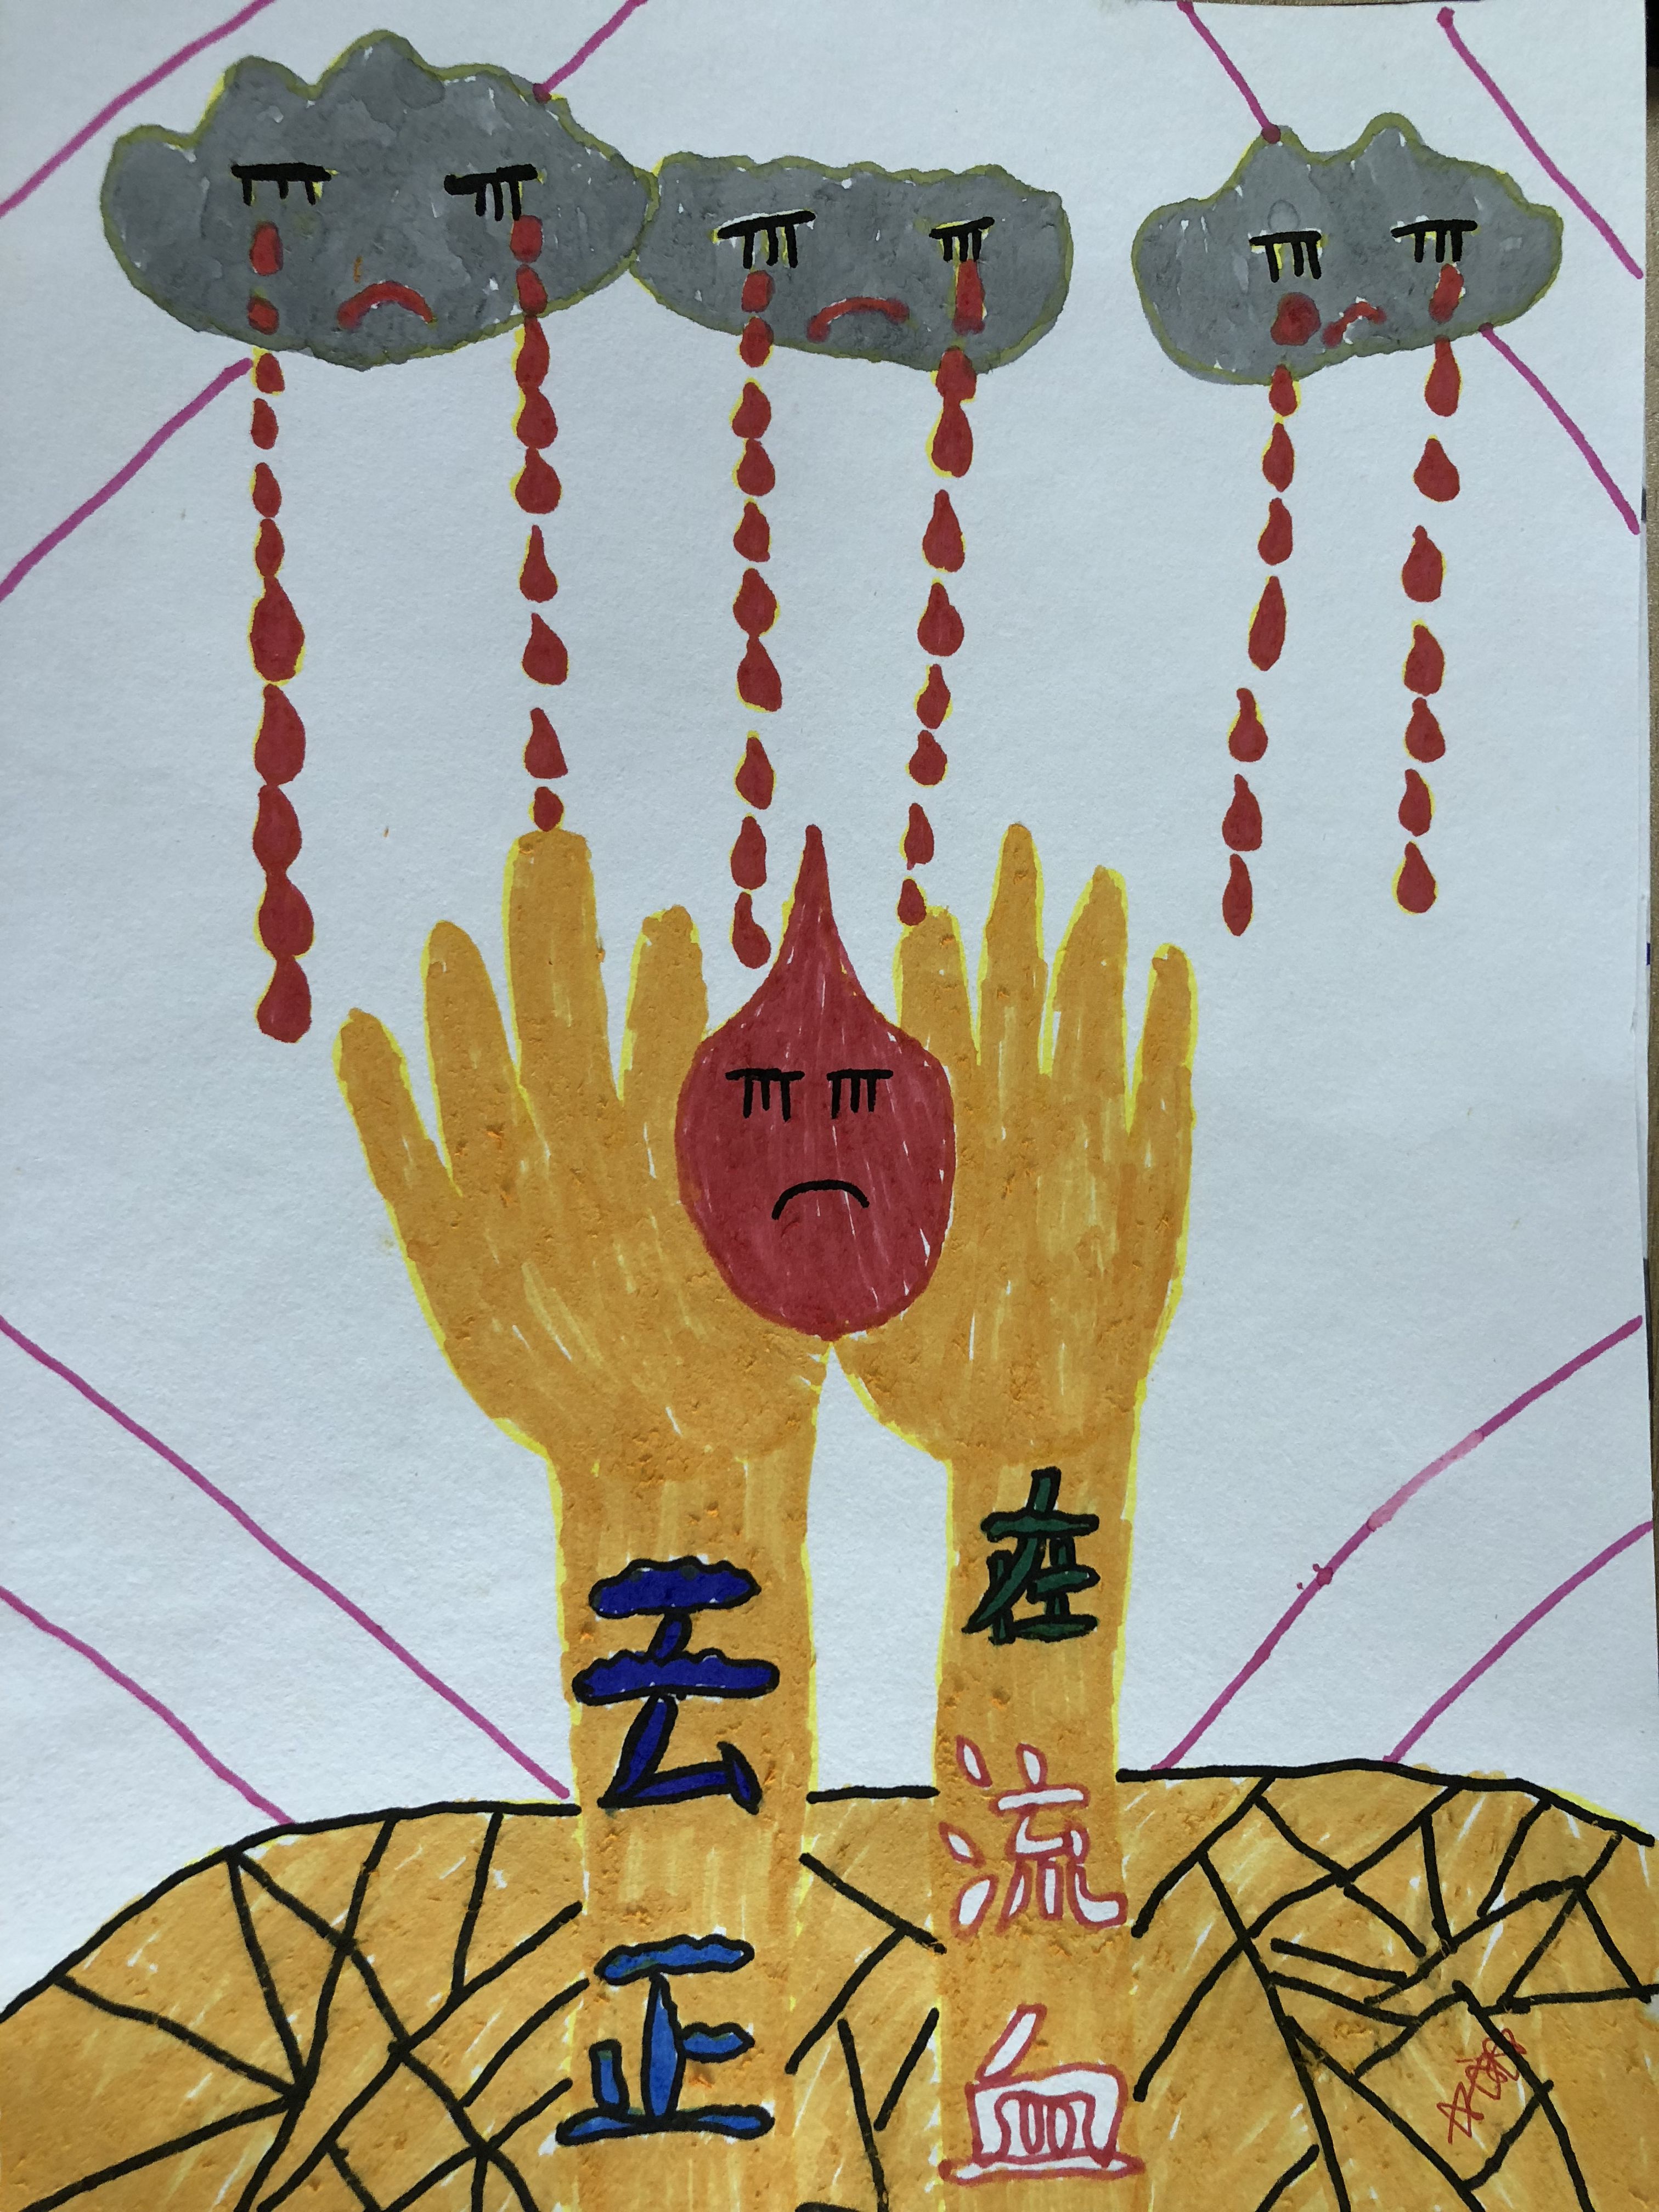 云正
在流血